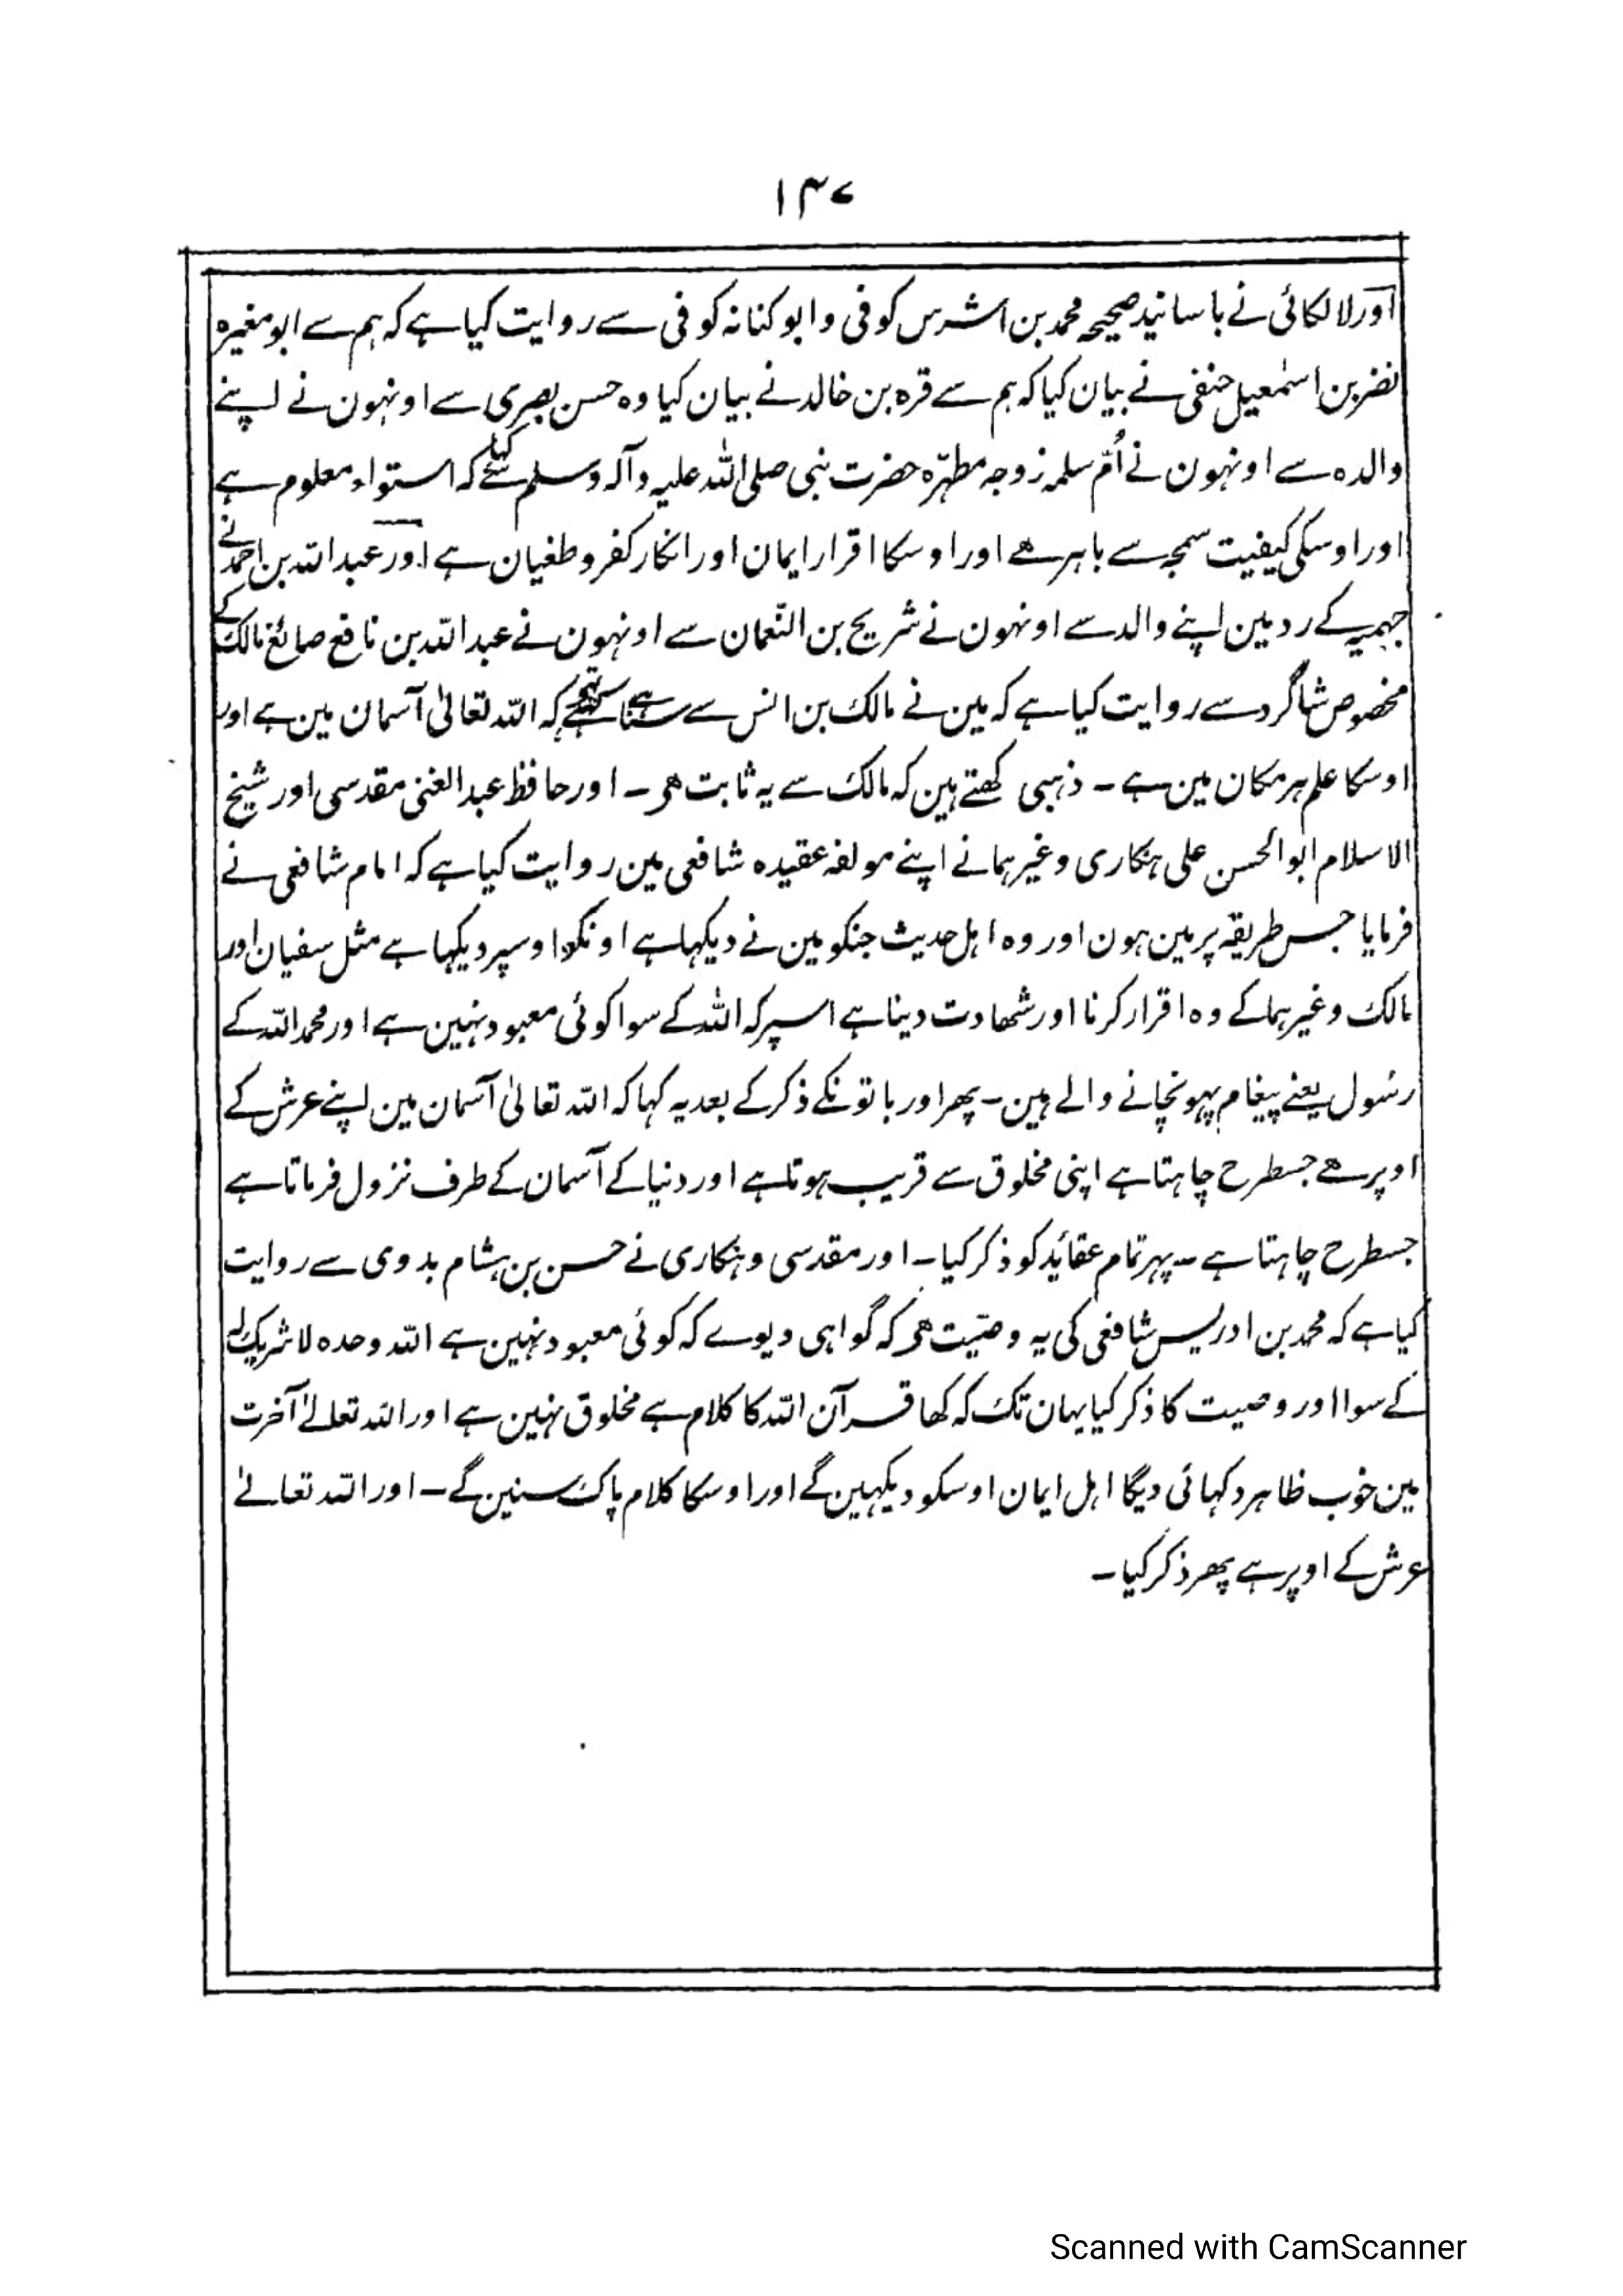 ۱۴۷
اور لالکائی نے باسانید صحیحہ محمد بن اشرس کوفی و ابو کنانہ کوفی سے روایت کیا ہے کہ ہم سے ابو مغیرہ
نضر بن اسمٰعیل حنفی نے بیان کیا کہ ہم سے قرہ بن خالد نے بیان کیا وہ حسن بصری سے اونہون نے اپنے
والدہ سے اونہون نے اُمّ سلمہ زوجہ مطہّرہ حضرت نبی صلی اللہ علیہ وآلہ وسلم سے کہ استواء معلوم ہے
اور اوسکی کیفیت سمجہ سے باہر ھے اور اوسکا اقرار ایمان اور انکار کفر و طغیان ہے اور عبداللہ بن احمد نے
جہمیہ کے رد مین اپنے والد سے اونہون نے شریح بن النّعمان سے اونہون نے عبداللہ بن نافع صائغ مالک کے
مخصوص شاگرد سے روایت کیا ہے کہ مین نے مالک بن انس سے سنا ہے کہتے تہے کہ اللہ تعالیٰ آسمان مین ہے اور
اوسکا علم ہر مکان مین ہے ۔ ذہبی کھتے ہین کہ مالک سے یہ ثابت ھی ۔ اور حافظ عبدالغنی مقدسی اور شیخ
الاسلام ابوالحسن علی ہنکاری وغیرہما نے اپنے مولفہ عقیدہ شافعی مین روایت کیا ہے کہ امام شافعی نے
فرمایا جس طریقہ پر مین ہون اور وہ اہل حدیث جنکو مین نے دیکہا ہے اونکو اوسپر دیکہا ہے مثل سفیان اور
مالک وغیرہما کے وہ اقرار کرنا اور شھادت دینا ہے اسپر کہ اللہ کے سوا کوئی معبود نہین ہے اور محمد اللہ کے
رسُول یعنے پیغام پہونچانے والے ہین ۔ پھر اور باتونکے ذکر کے بعد یہ کہا کہ اللہ تعالیٰ آسمان مین اپنے عرش کے
اوپر ھے جسطرح چاہتا ہے اپنی مخلوق سے قریب ہوتا ہے اور دنیا کے آسمان کے طرف نزول فرماتا ہے
جسطرح چاہتا ہے ۔ پہر تمام عقائد کو ذکر کیا ۔ اور مقدسی و ہنکاری نے حسن بن ہشام بدوی سے روایت
کیا ہے کہ محمد بن ادریس شافعی کی یہ وصیّت ھی کہ گواہی دیوے کہ کوئی معبود نہین ہے اللہ وحدہ لا شریک لہ
کے سوا اور وصیت کا ذکر کیا یہان تک کہ کھا قرآن اللہ کا کلام ہے مخلوق نہین ہے اور اللہ تعالےٰ آخرت
مین خوب ظاہر دکہائی دیگا اہل ایمان اوسکو دیکہین گے اور اوسکا کلام پاک سنین گے ۔ اور اللہ تعالےٰ
عرش کے اوپر ہے پھر ذکر کیا ۔
Scanned with CamScanner